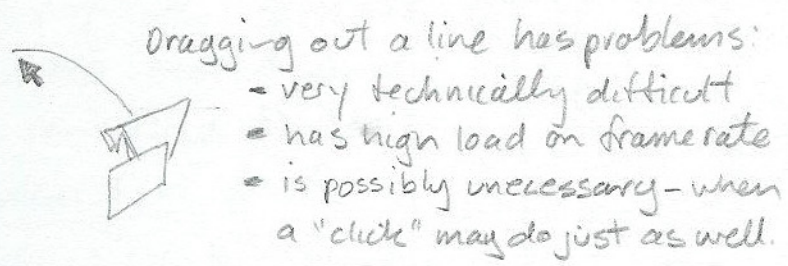 Dragging out a line has problems:
- very technically difficult
- has high load on framerate
- is possibly unecessary - when
a "click" may do just as well.